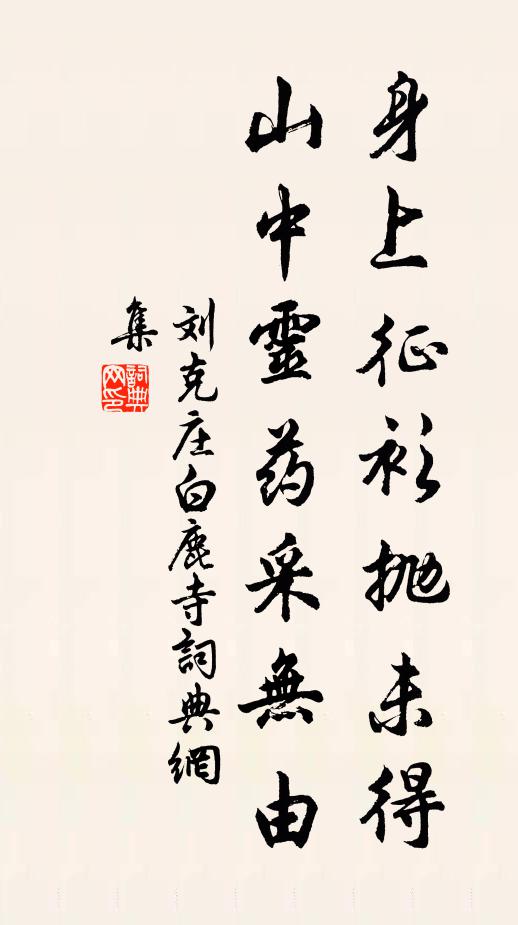 身上征衫抛未得
山中靈药采無由
刘克庄白鹿寺詞典網
集
詞典网印